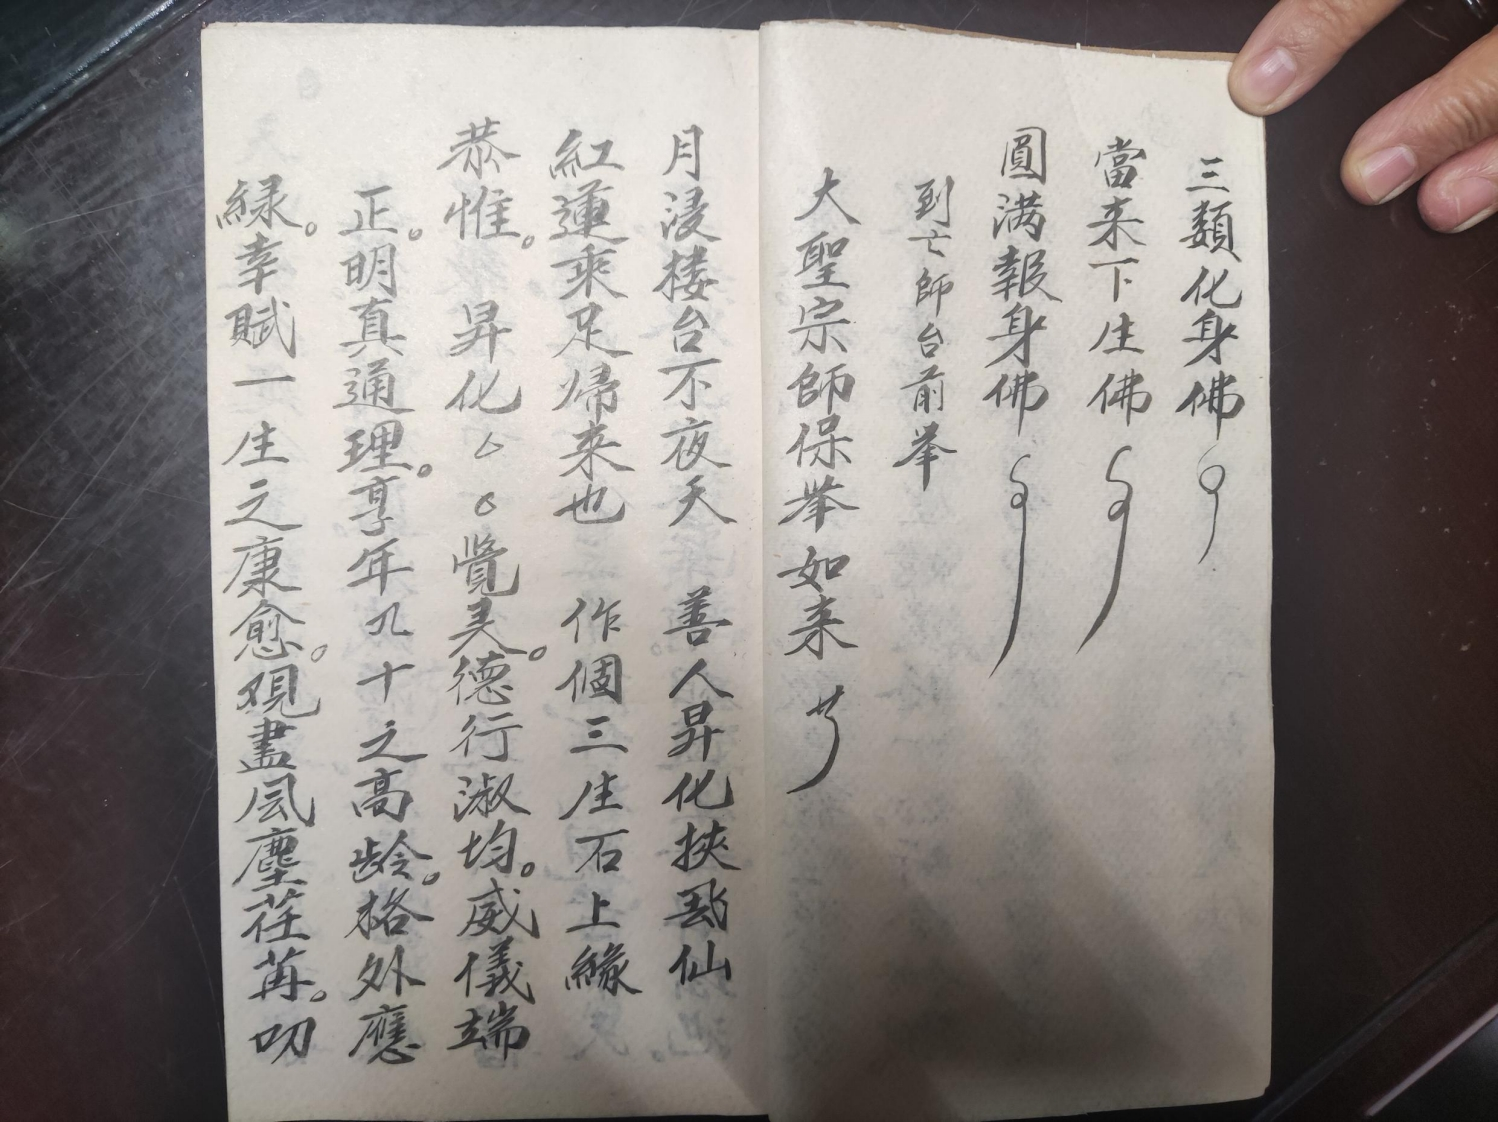 三類化身佛
當来下生佛
圓满報身佛
到亡師台前举
大聖宗師保举如来
月浸楼台不夜天 善人昇化挾飛仙
紅蓮乘足歸来也 作個三生石上緣
恭惟。昇化厶厶覺灵。德行淑均。威儀端
正。明真通理。享年九十之高齡。格外應
緑。幸賦一生之康愈。观盡风塵荏苒。叨